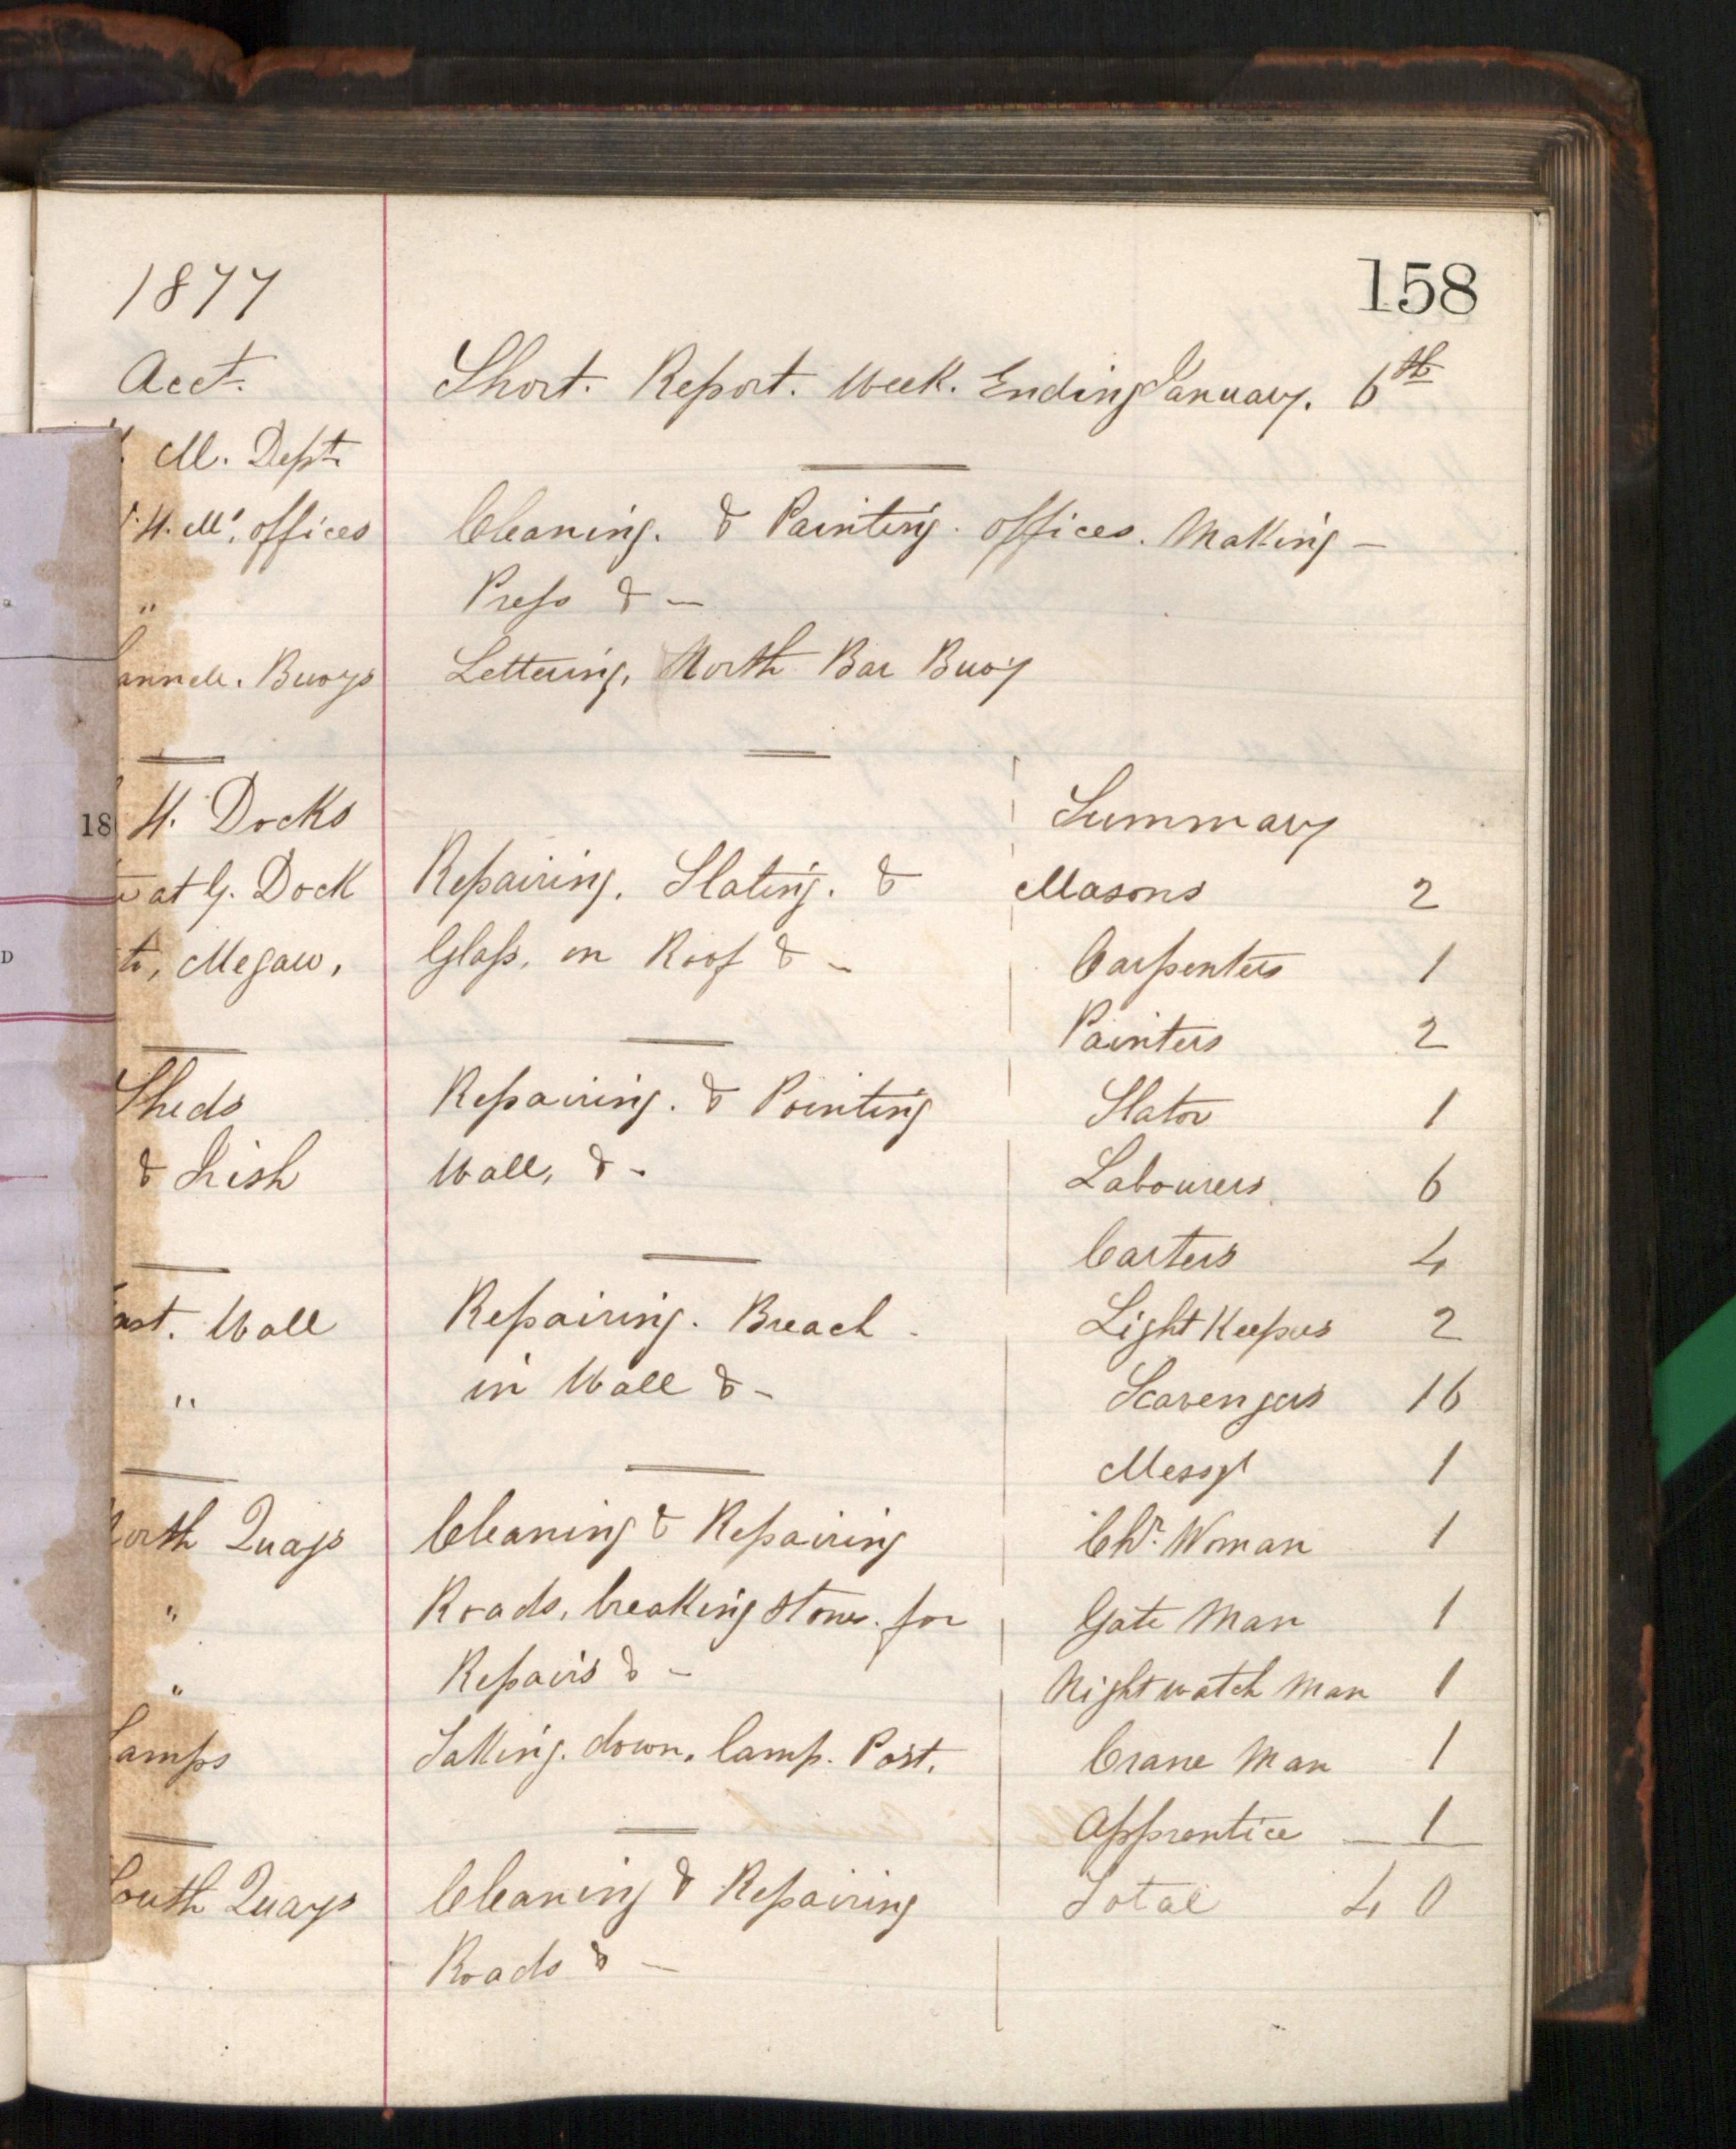 158
1877
Acct. Short. Report. Week. Ending January. 6th
M. Dept.
H. Mr. offices Cleaning. & Painting. offices. Making —
" Press & —
Buoys Lettering, North Bar Buoy
H. Docks Summary
18
at G. Dock Repairing. Slating. & Masons 2
Megaw, Glass, on Roof & — Carpenters 1
D
Painters 2
Sheds Repairing. & Pointing Slator 1
& Irish Wall, & - Labourers 6
Carters 4
Wall Repairing. Breach. Light Keepers 2
" in Wall & - Scavengers 16
Messgr 1
North Quays Cleaning & Repairing Chr. Woman 1
" Roads, breaking stones. for Gate Man 1
" Repairs & - Night watch Man 1
Lamps Taking. down. lamp. Post. Crane Man 1
Apprentice — 1
South Quays Cleaning & Repairing Total 40
Roads & —